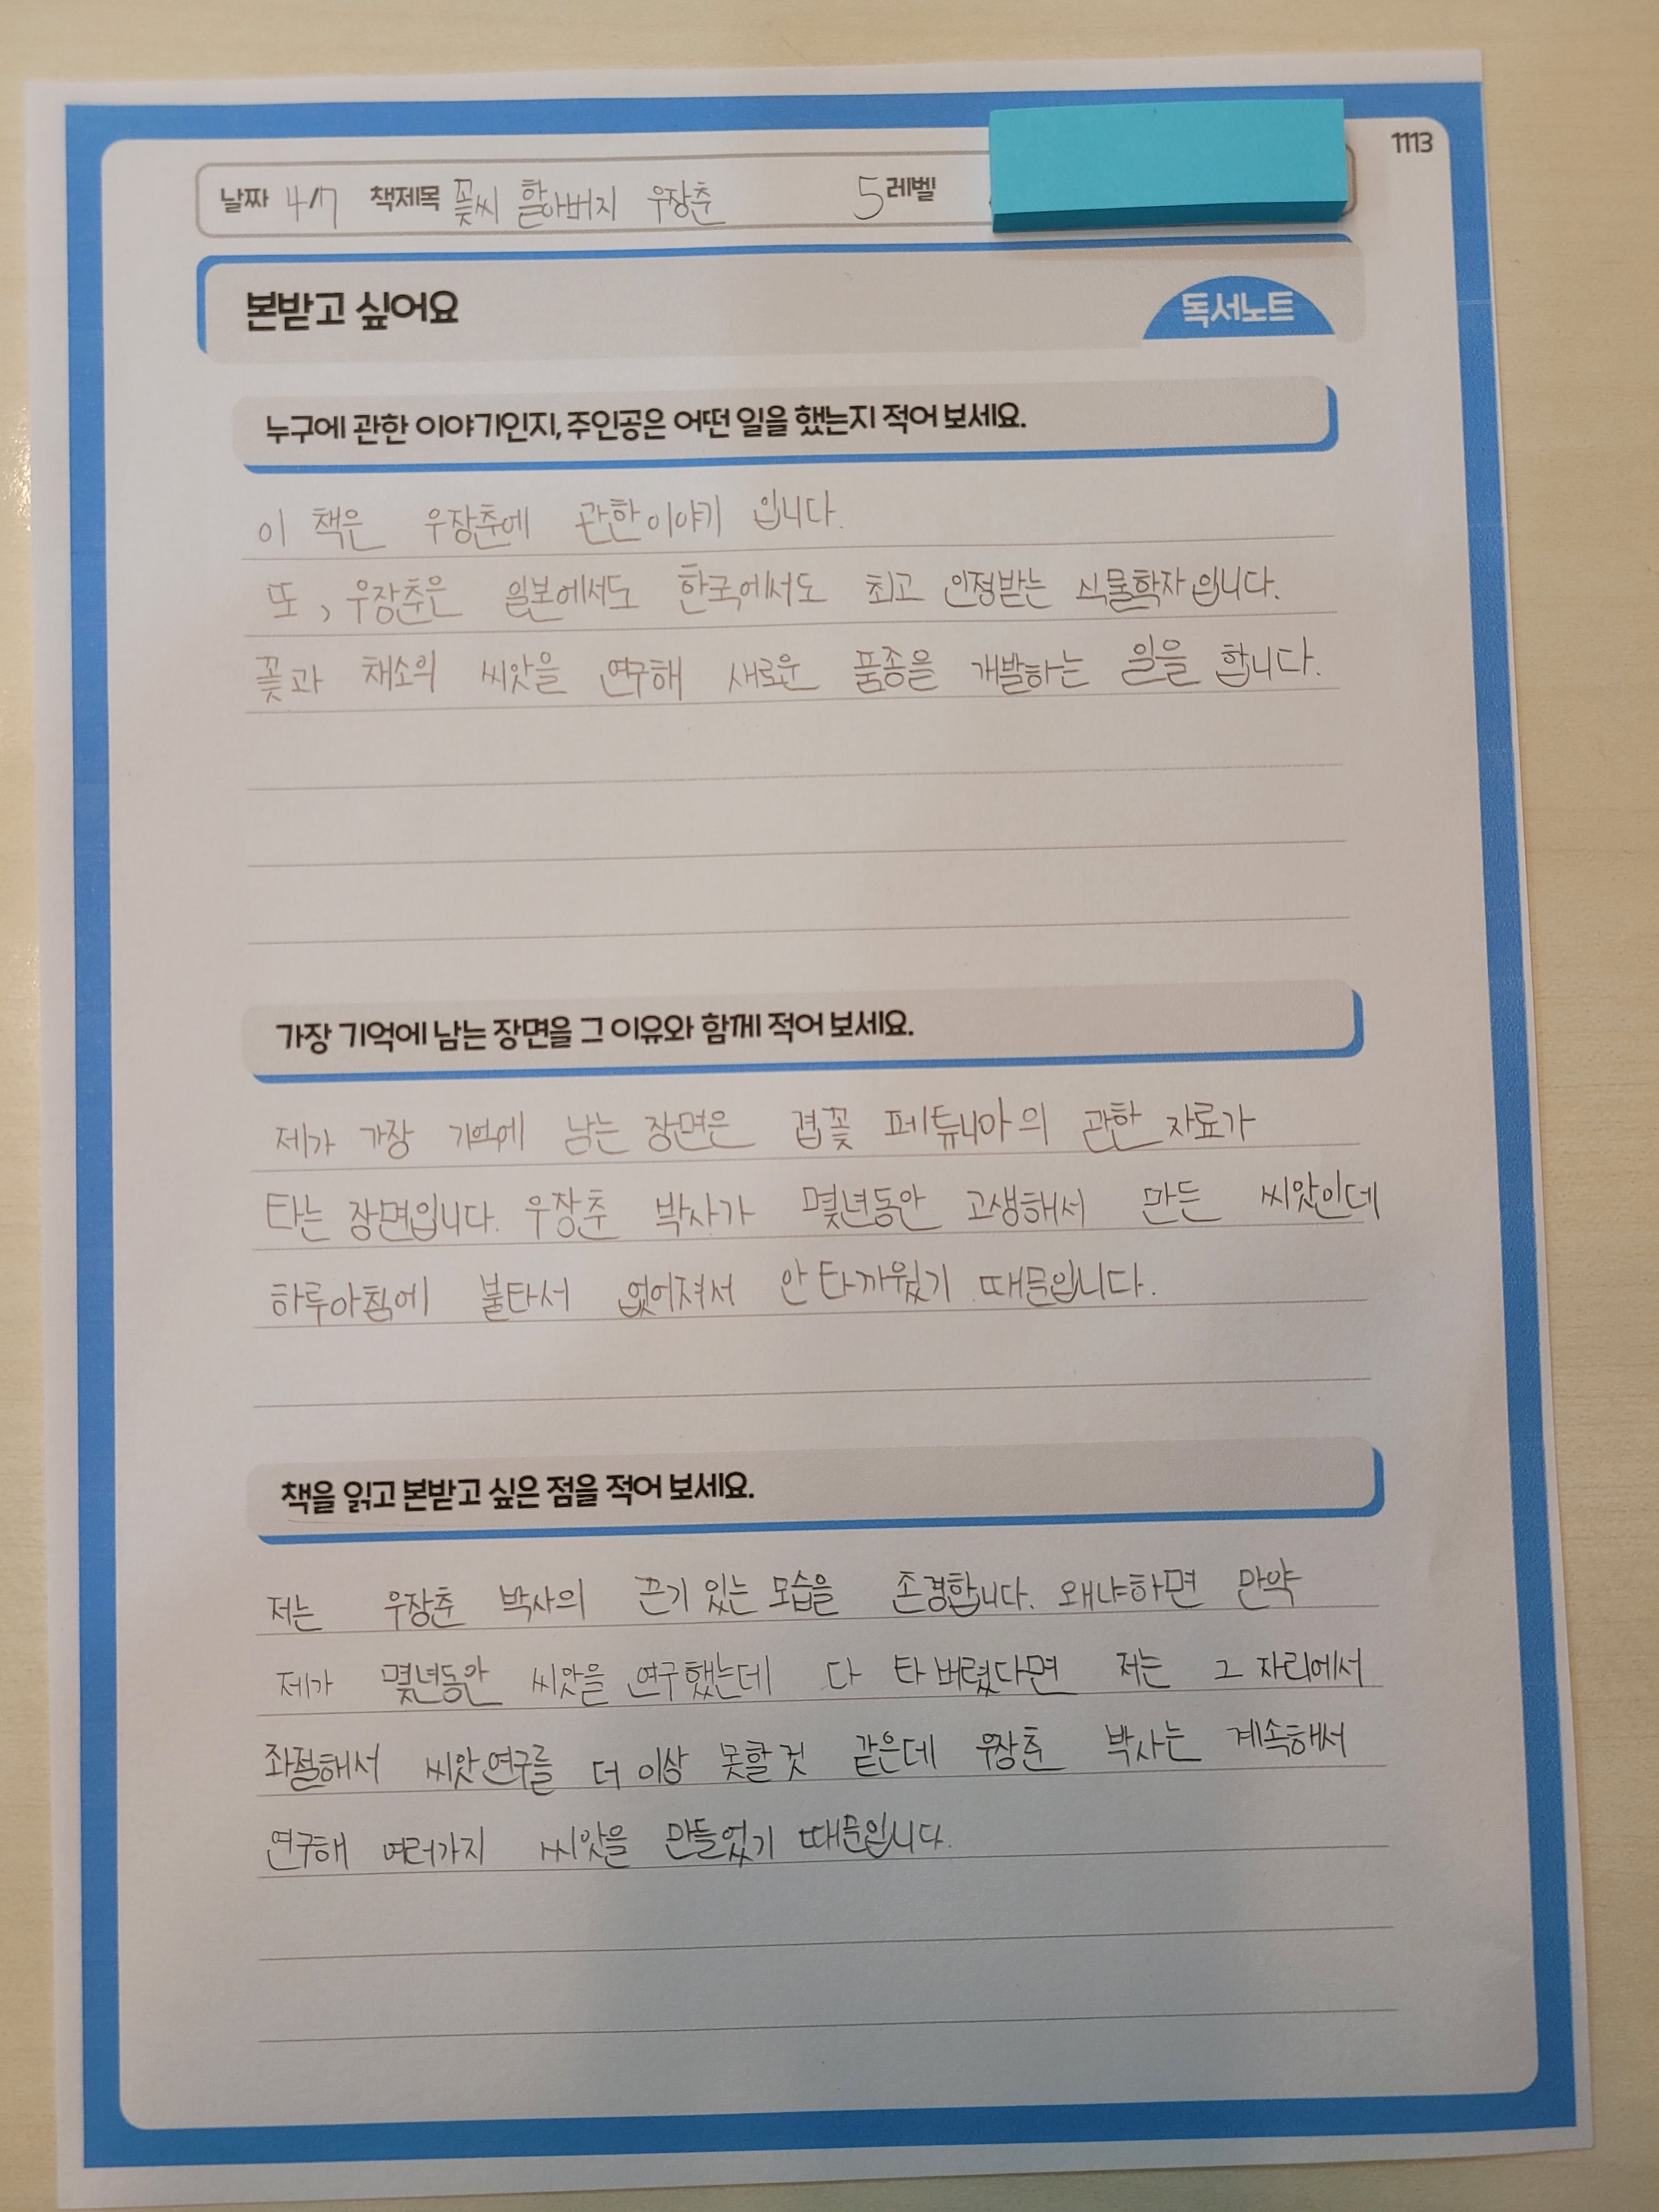 1113
날짜 4/7 책제목 꽃씨 할아버지 우장춘 5레벨
본받고 싶어요 독서노트
누구에 관한 이야기인지, 주인공은 어떤 일을 했는지 적어 보세요.
이 책은 우장춘에 관한이야기 입니다.
또, 우장춘은 일본에서도 한국에서도 최고 인정받는 식물학자입니다.
꽃과 채소의 씨앗을 연구해 새로운 품종을 개발하는 일을 합니다.
가장 기억에 남는 장면을 그 이유와 함께 적어 보세요.
제가 가장 기억에 남는 장면은 겹꽃 페튜니아의 관한 자료가
타는 장면입니다. 우장춘 박사가 몇년동안 고생해서 만든 씨앗인데
하루아침에 불타서 없어져서 안타까웠기 때문입니다.
책을 읽고 본받고 싶은 점을 적어 보세요.
저는 우장춘 박사의 끈기 있는 모습을 존경합니다. 왜냐하면 만약
제가 몇년동안 씨앗을 연구했는데 다 타 버렸다면 저는 그 자리에서
좌절해서 씨앗연구를 더 이상 못할것 같은데 우장춘 박사는 계속해서
연구해 여러가지 씨앗을 만들었기 때문입니다.